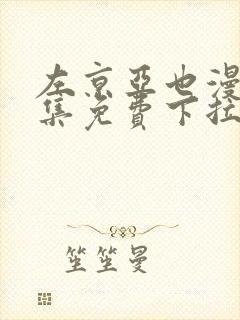 左京亚也漫
集免费下拉
笙笙曼